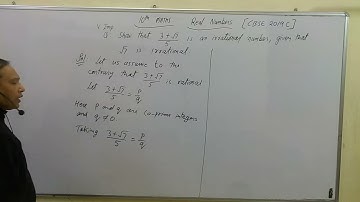 10th MATHS Real Numbers [CBSE 2019 C]
V. Imp.
Q. Show that (3+√7)/5 is an irrational number, given that
√7 is irrational.
Sol. Let us assume to the
contrary that (3+√7)/5 is rational
Let (3+√7)/5 = p/q
Here p and q are co-prime integers
and q ≠ 0.
Taking (3+√7)/5 = p/q